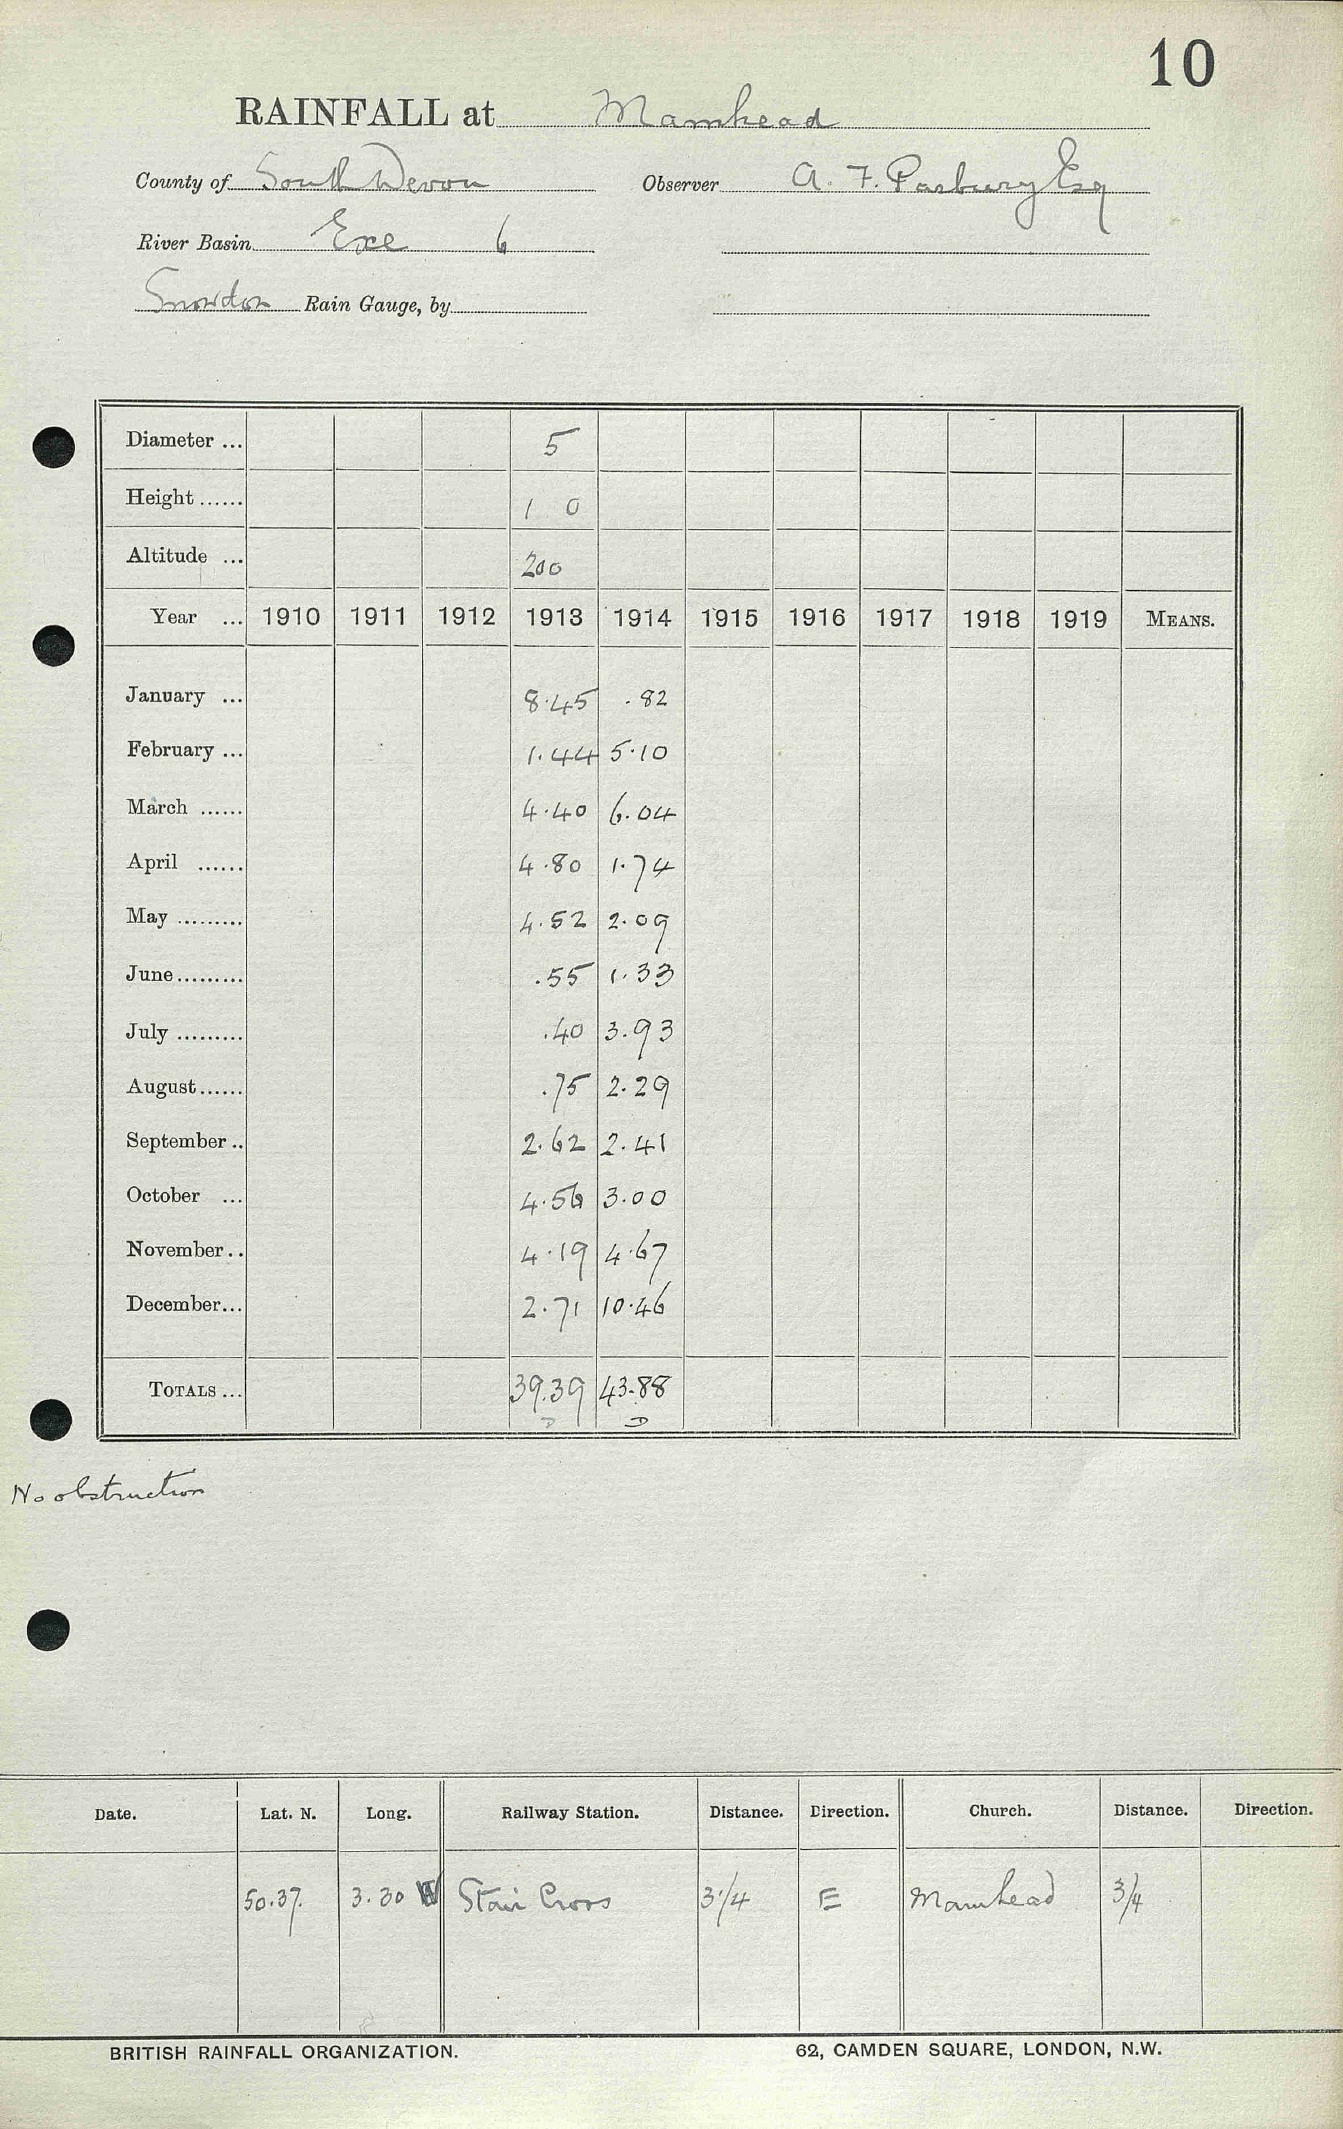 10
RAINFALL at Mamhead
County of South Devon Observer A. F. Pasbury Esq
River Basin Exe 6
Snowdon Rain Gauge, by
Diameter ... 5
Height ...... 1 0
Altitude ... 200
Year ... 1910 1911 1912 1913 1914 1915 1916 1917 1918 1919 MEANS.
January ... 8.45 .82
February ... 1.44 5.10
March ...... 4.40 6.04
April ...... 4.80 1.74
May ......... 4.52 2.09
June ......... .55 1.33
July ......... .40 3.93
August ...... .75 2.29
September .. 2.62 2.41
October ... 4.56 3.00
November .. 4.19 4.67
December ... 2.71 10.46
TOTALS ... 39.39 43.88
D D
No obstruction
Date. Lat. N. Long. Railway Station. Distance. Direction. Church. Distance. Direction.
50.37. 3.30 W Star Cross 3 1/4 E Mamhead 3/4
BRITISH RAINFALL ORGANIZATION. 62, CAMDEN SQUARE, LONDON, N.W.